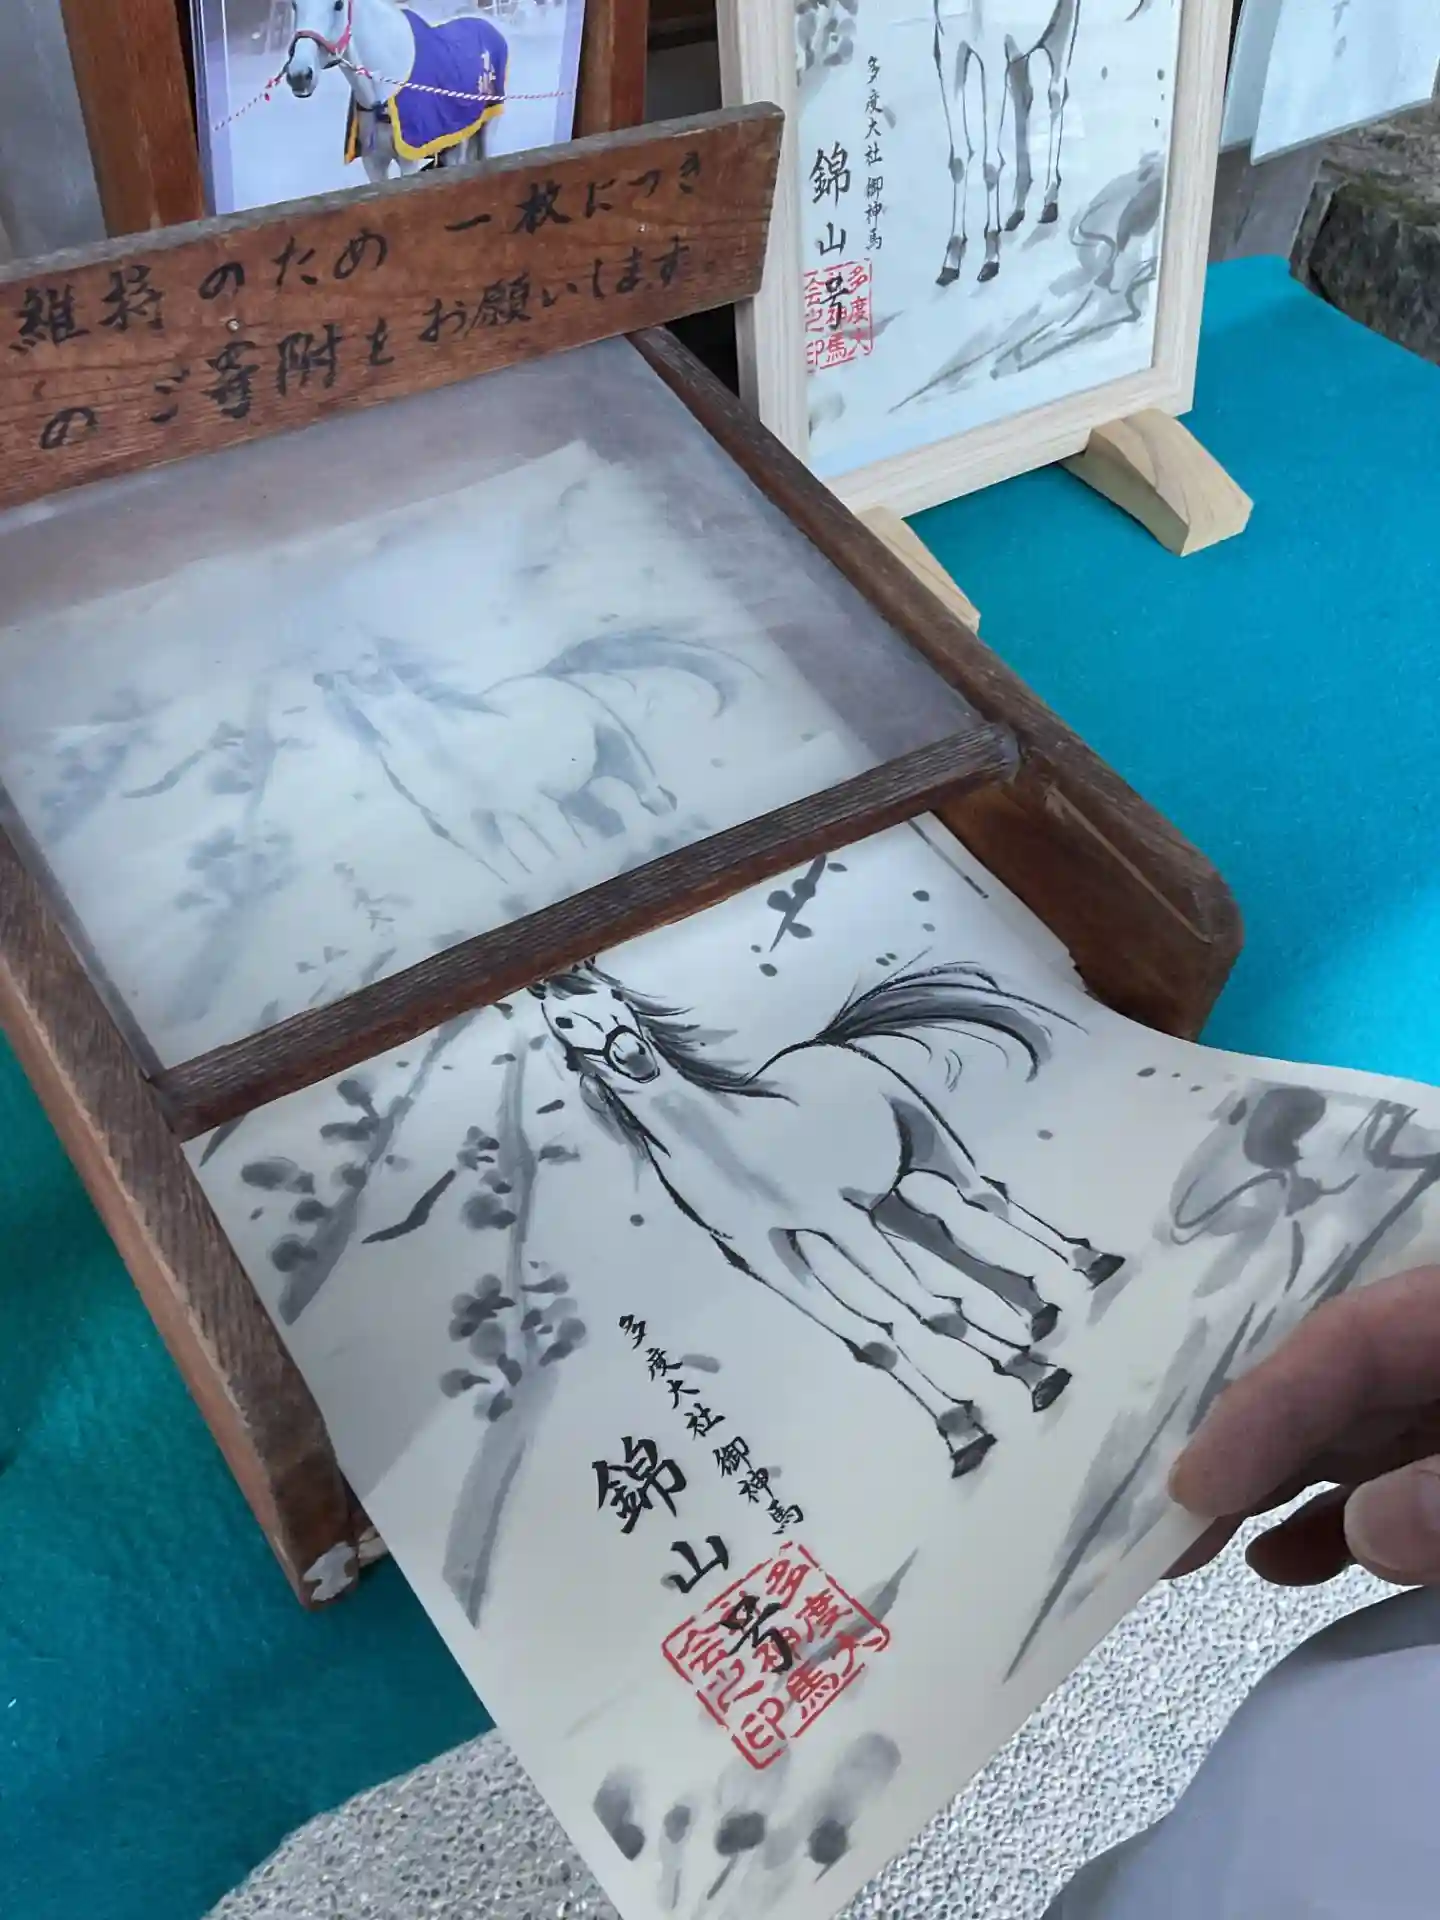 維持のため 一枚につき
のご寄附をお願いします
多度大社 御神馬
錦山号
多度大
社神馬
会之印
多度大社 御神馬
錦山号
多度大
神馬
会之印